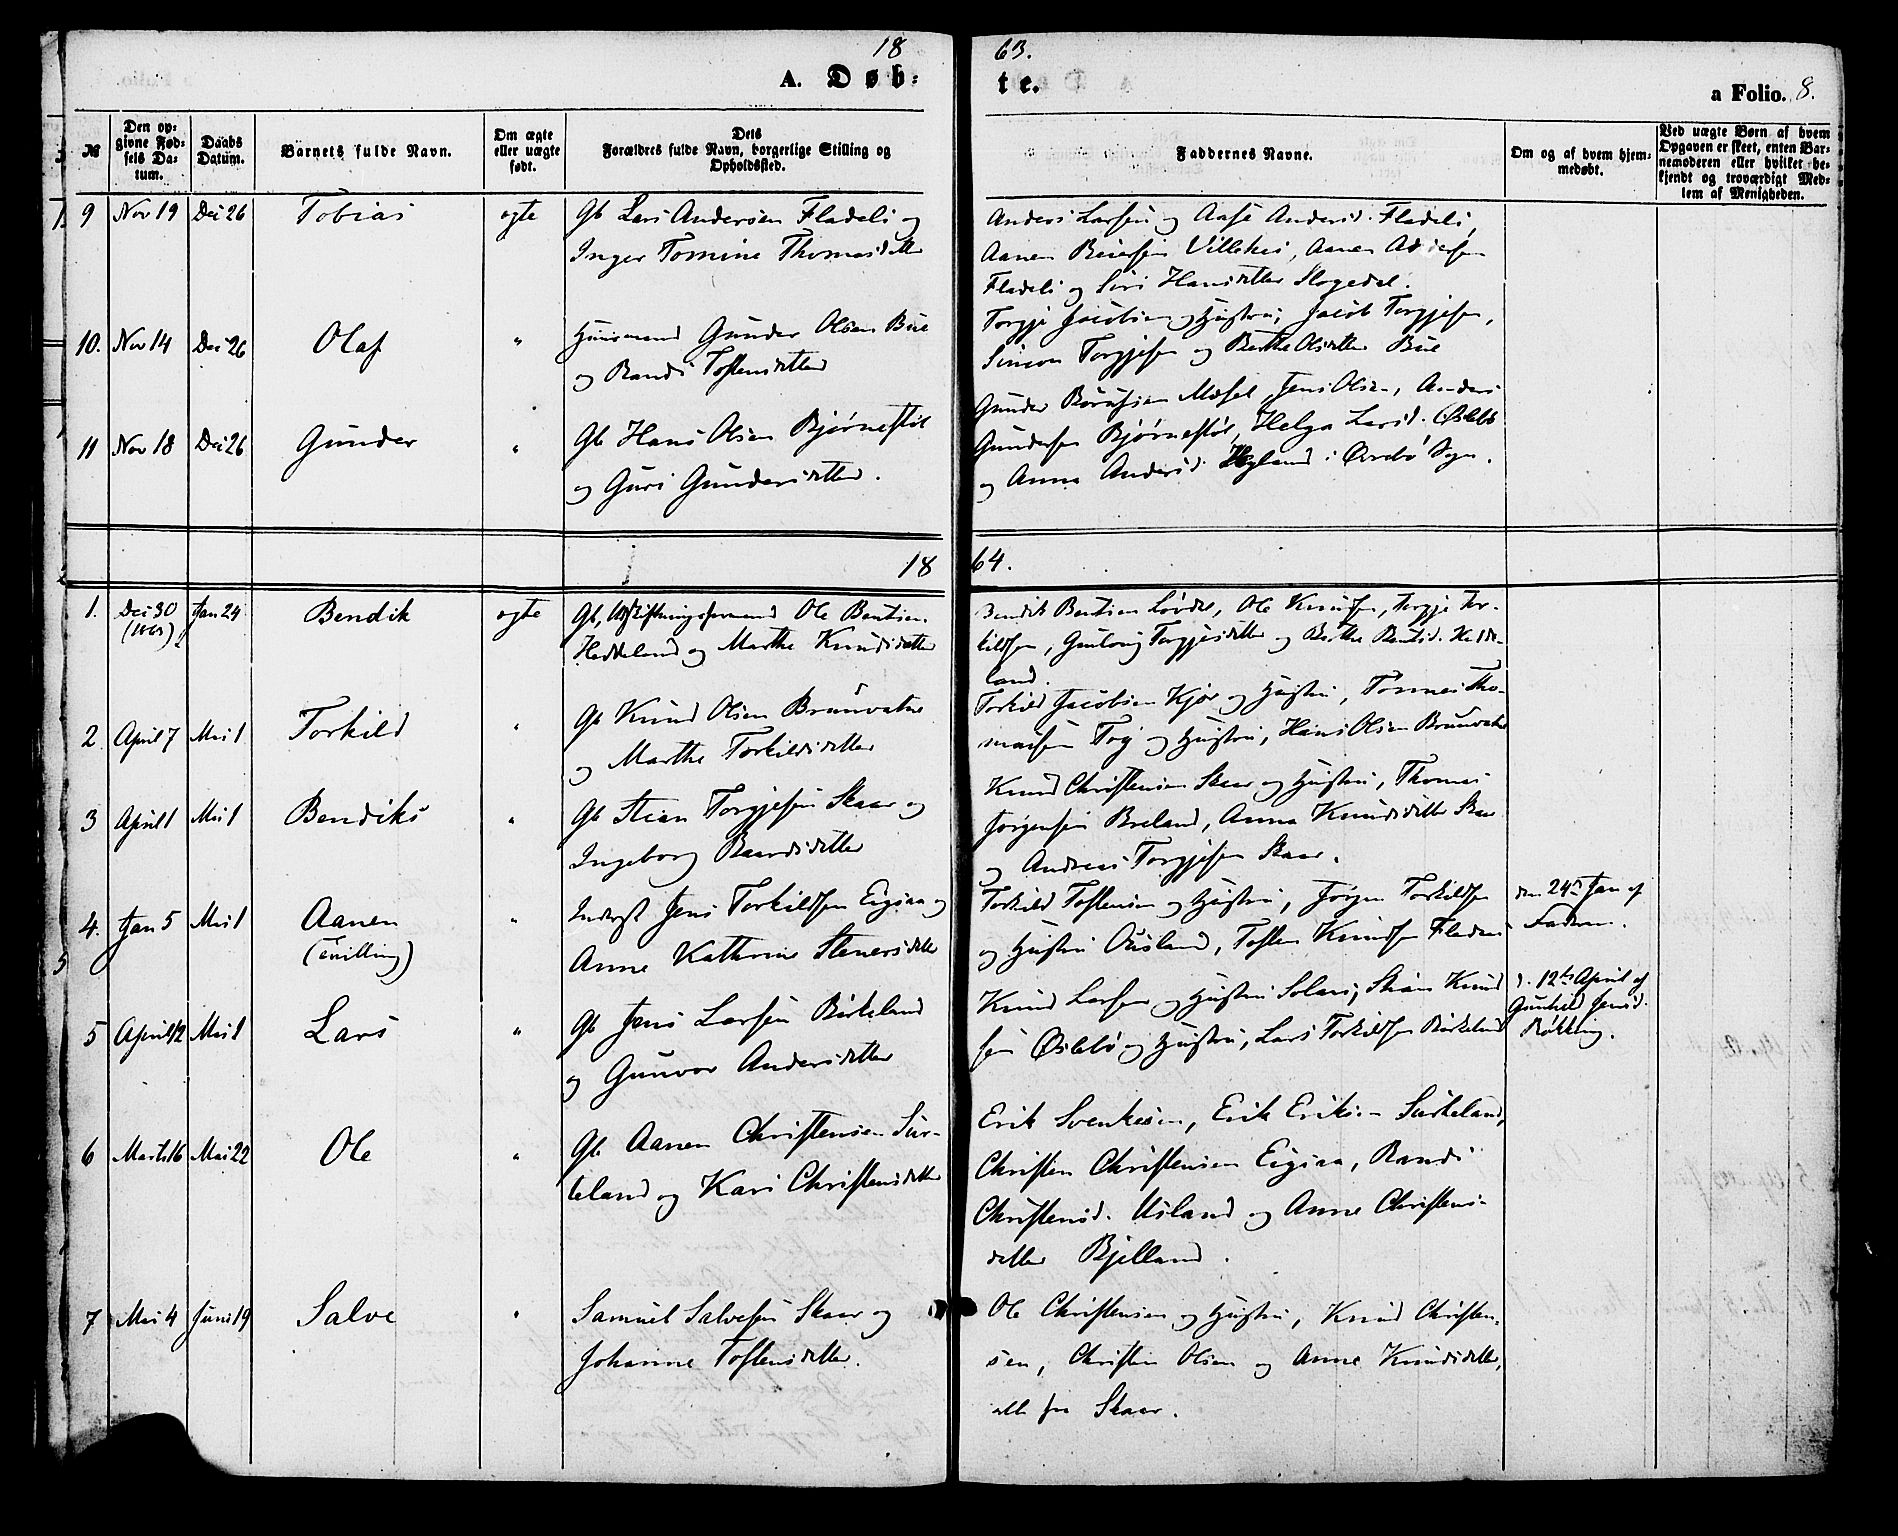 18 63.
A. Døb- te.
a Folio. 8.
№
Den op-
givne Fød-
sels Da-
tum.
Daabs
Datum.
Barnets fulde Navn.
Om ægte
eller uægte
født.
Dets
Forældres fulde Navn, borgerlige Stilling og
Opholdssted.
Faddernes Navne.
Om og af hvem hjem-
medøbt.
Ved uægte Børn af hvem
Opgaven er skeet, enten Bar-
nemoderen eller hvilket be-
kjendt og troværdigt Med-
lem af Menigheden.
9 Nov 19 Dec 26 Tobias ægte Gb Lars Andersen Fladeli og
Inger Tomine Thomasdatter
Anders Larsen og Aase Andersd. Fladeli,
Aanen Reiersen Aanen Andersen
Fladeli og Siri Hansdatter Slogedal.
10. Nov 14 Dec 26 Olaf " Huusmand Gunder Olsen Bue
og Randi Tostensdatter
Torgje Jacobsen og Hustru, Jacob Torgjesen,
Simon Torgjesen og Berthe Olsdatter Bue
11 Nov 18 Dec 26 Gunder " Gb Hans Olsen Bjørnestøl
og Guri Gundersdatter.
Gunder Mosel, Jens Olsen, Anders
Gundersen Bjørnestøl, Helga Larsd. Øslebø
og Anna Andersd. Hegland i Øvrebø Sogn.
18 64.
1. Dec 30 (1863) Jan 24 Bendik ægte Gb, Ole Bentsen
Heddeland og Marthe Knudsdatter
Bendik Bentsen Løvdal, Ole Knudsen, Torgje Tor-
kildsen, Gunlaug Torgjusdatter og Berthe Bentsd. Hedde-
land.
2 April 7 Mai 1 Torkild " Gb Knud Olsen Brunvatne
og Marthe Torkildsdatter
Torkild Jacobsen Kjær og Hustru, Tønnes Tho-
masen Tog og Hustru, Hans Olsen Brunvatne
3 April 1 Mai 1 Bendiks " Gb Stian Torgjesen Skaar og
Ingeborg Baardsdatter
Knud Christensen Skaar og Hustru, Thomas
Jørgensen Breland, Anna Knudsdatter Skaar
og Andreas Torgjesen Skaar.
4. Jan 5 Mai 1 Aanen
(Tvilling) " Inderst Jens Torkildsen Eigaa og
Anne Kathrine Stenersdatter
Torkild Tostensen og Hustru, Jørgen Torkildsen
og Hustru Ousland, Tosten Knudsen
den 24de Jan af
Faderen.
5 April 12 Mai 1 Lars " Gb Jens Larsen Birkeland
og Gunvor Andersdatter
Knud Larsen og Hustru Solaas, Stian Knud-
sen Øslebø og Hustru, Lars Torkildsen Birkeland
d. 12te April af
Gunhild Jensd.
6 Marts 16 Mai 22 Ole " Gb Aanen Christensen Sur-
teland og Kari Christensdatter
Erik Svenkesen, Erik Eriksen Surteland,
Christen Christensen Eigaa, Randi
Christensd. Usland og Anne Christens-
datter Bjelland.
7 Mai 4 Juni 19 Salve " Samuel Salvesen Skaar og
Johanne Tostensdatter.
Ole Christensen og Hustru, Knud Christen-
sen, Christen Olsen og Anne Knudsdatter,
alle fra Skaar.